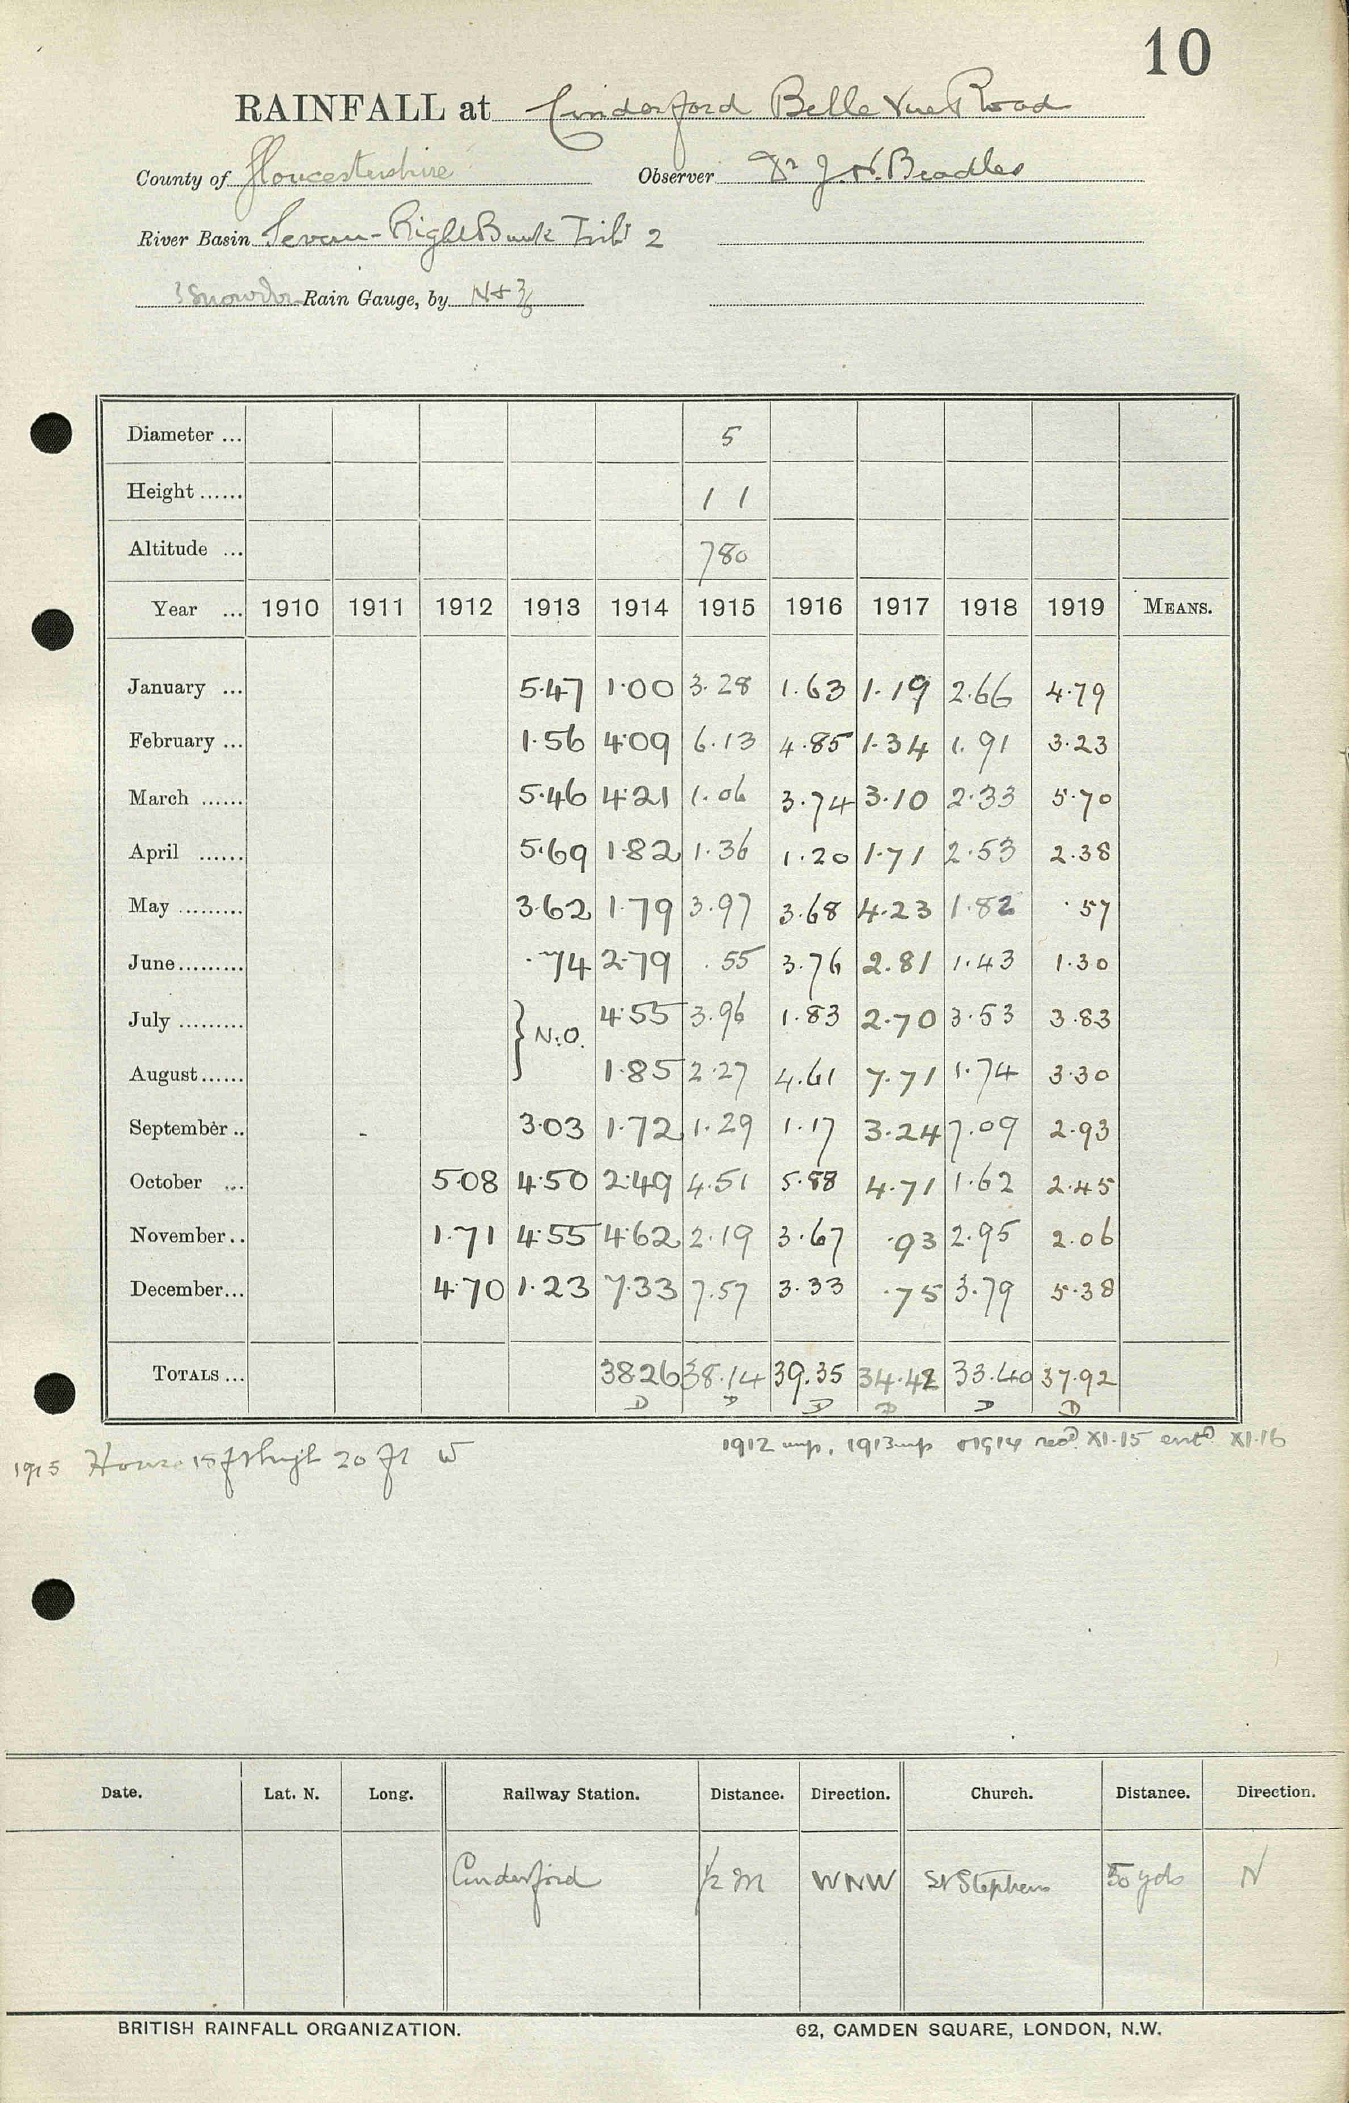 10
RAINFALL at Cinderford Belle Vue Road
County of Gloucestershire Observer Dr J. H. Beadles
River Basin Severn - Right Bank Tribs 2
Snowdon Rain Gauge, by N & Z
Diameter ... 5
Height ...... 1 1
Altitude ... 780
Year ... 1910 1911 1912 1913 1914 1915 1916 1917 1918 1919 MEANS.
January ... 5.47 1.00 3.28 1.63 1.19 2.66 4.79
February ... 1.56 4.09 6.13 4.85 1.34 1.91 3.23
March ...... 5.46 4.21 1.06 3.74 3.10 2.33 5.70
April ...... 5.69 1.82 1.36 1.20 1.71 2.53 2.38
May ......... 3.62 1.79 3.97 3.68 4.23 1.82 .57
June ......... .74 2.79 .55 3.76 2.81 1.43 1.30
July ......... } N.O. 4.55 3.96 1.83 2.70 3.53 3.83
August ...... 1.85 2.27 4.61 7.71 1.74 3.30
September .. 3.03 1.72 1.29 1.17 3.24 7.09 2.93
October ... 5.08 4.50 2.49 4.51 5.88 4.71 1.62 2.45
November .. 1.71 4.55 4.62 2.19 3.67 .93 2.95 2.06
December ... 4.70 1.23 7.33 7.57 3.33 .75 3.79 5.38
TOTALS ... 38.26 38.14 39.35 34.42 33.40 37.92
D D D D D D
1912 mp, 1913 mp 1914 recd XI.15 entd XI.16
1915 House 15 ft high 20 ft W
Date. Lat. N. Long. Railway Station. Distance. Direction. Church. Distance. Direction.
Cinderford 1/2 m WNW St Stephens 50 yds N
BRITISH RAINFALL ORGANIZATION. 62, CAMDEN SQUARE, LONDON, N.W.